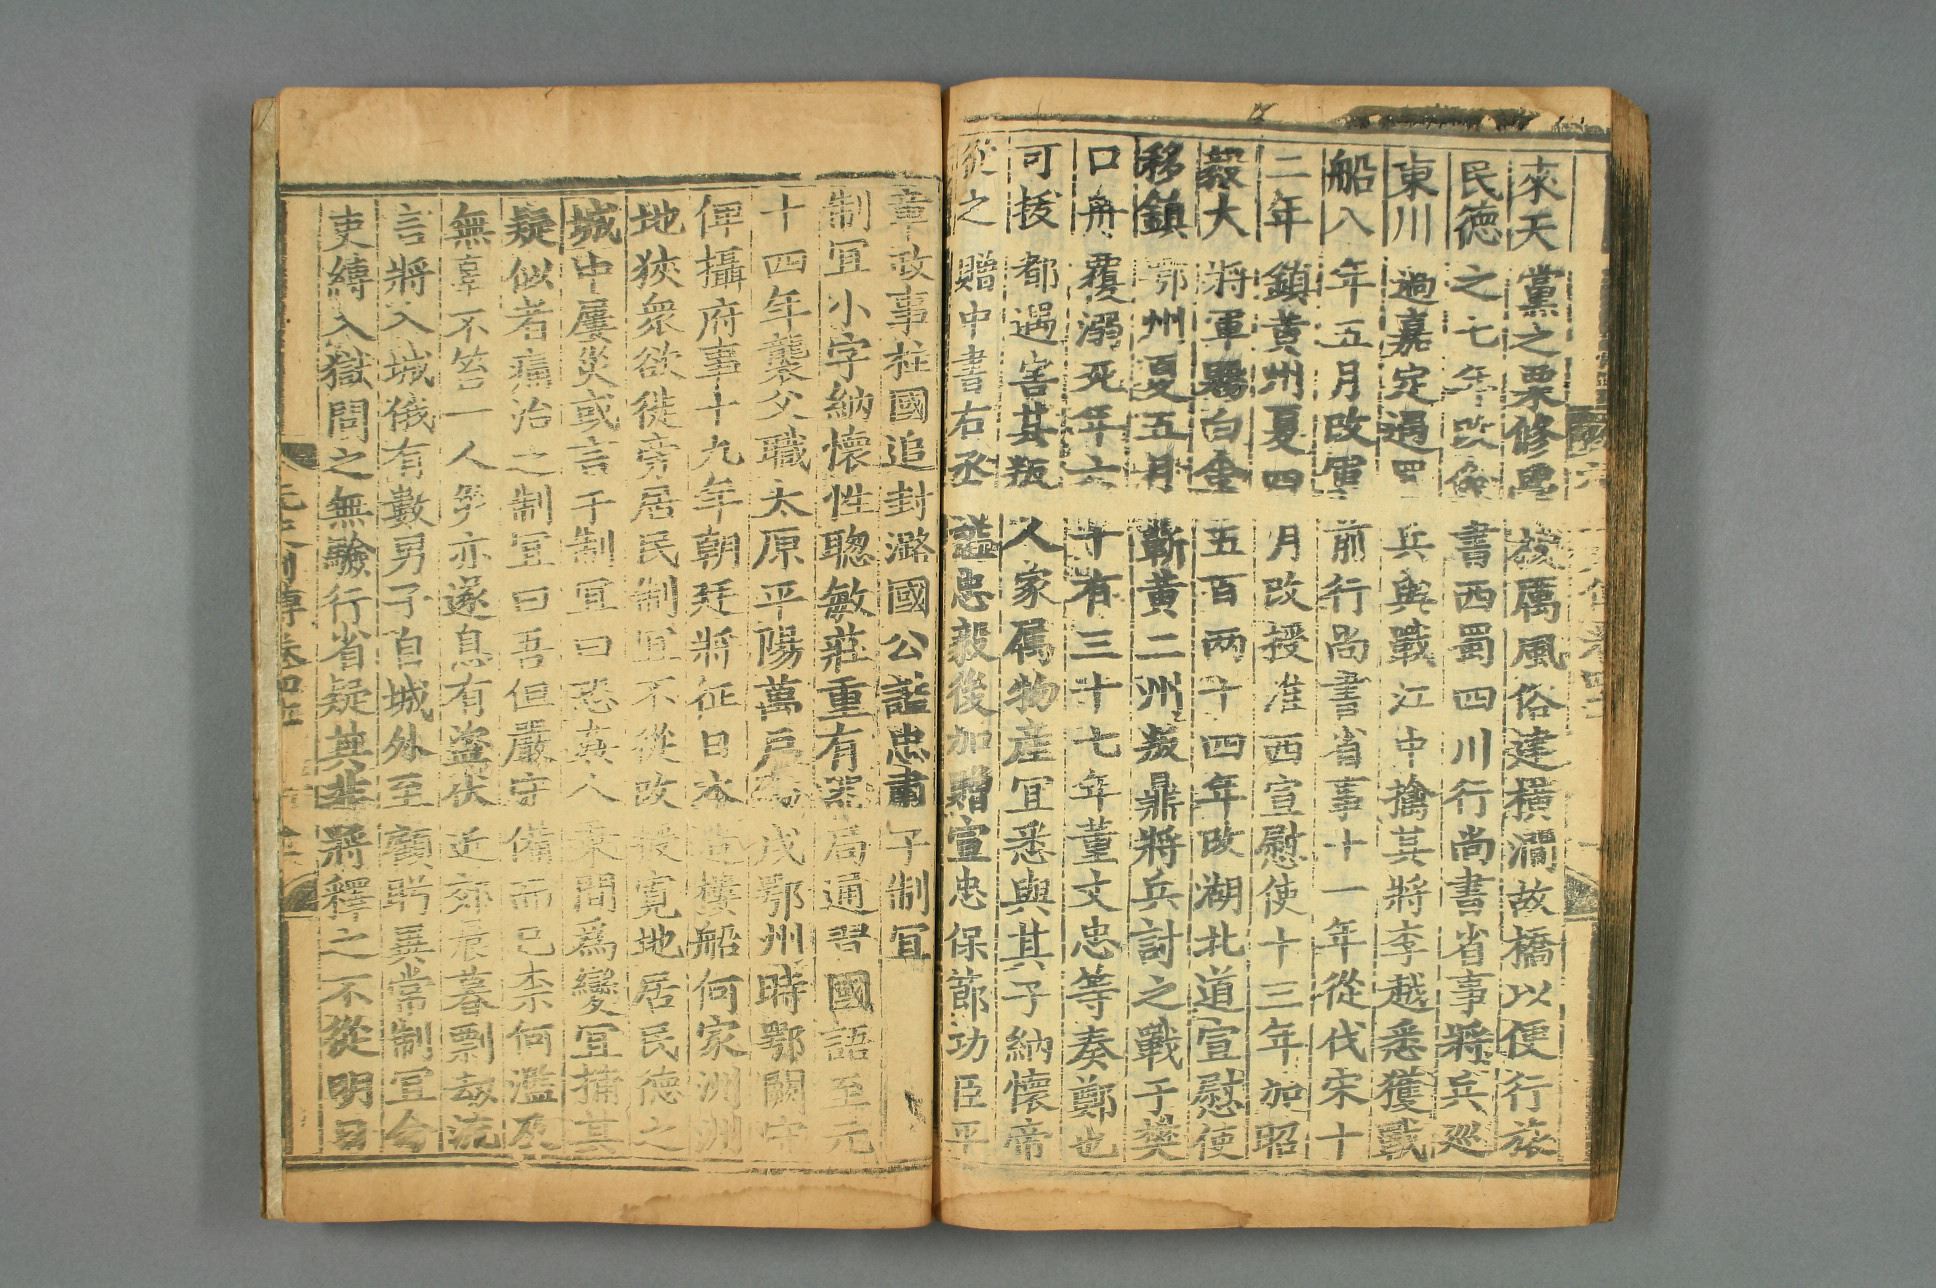 來天黨之粟修學校厲風俗建橫瀾故橋以便行旅
民德之七年改僉書西蜀四川行尚書省事將兵巡
東川過嘉定遇宋兵與戰江中擒其將李越悉獲戰
船八年五月改軍前行尚書省事十一年從伐宋十
二年鎮黃州夏四月改授淮西宣慰使十三年加昭
毅大將軍賜白金五百兩十四年改湖北道宣慰使
移鎮鄂州夏五月蘄黃二州叛鼎將兵討之戰于樊
口舟覆溺死年六十有三十七年董文忠等奏鄭也
可拔都遇害其叛人家属物産冝悉與其子納懷帝
從之贈中書右丞謚忠毅後加贈宣忠保節功臣平
章政事柱國追封潞國公謚忠肅子制冝
制冝小字納懷性聰敏莊重有器局通習國語至元
十四年襲父職太原平陽萬户仍戍鄂州時鄂闕守
俾攝府事十九年朝廷將征日本造樓船何家洲洲
地狹衆欲徙旁居民制冝不從改授寬地居民德之
城中屢災或言于制冝曰恐姦人乘間爲變冝捕其
疑似者痛治之制冝曰吾但嚴守備而已柰何濫及
無辜不笞一人災亦遂息有盜伏近郊晨暮剽劫流
言將入城俄有數男子自城外至顧眄異常制冝命
吏縛入獄問之無驗行省疑其非將釋之不從明日
元史列傳卷四十一